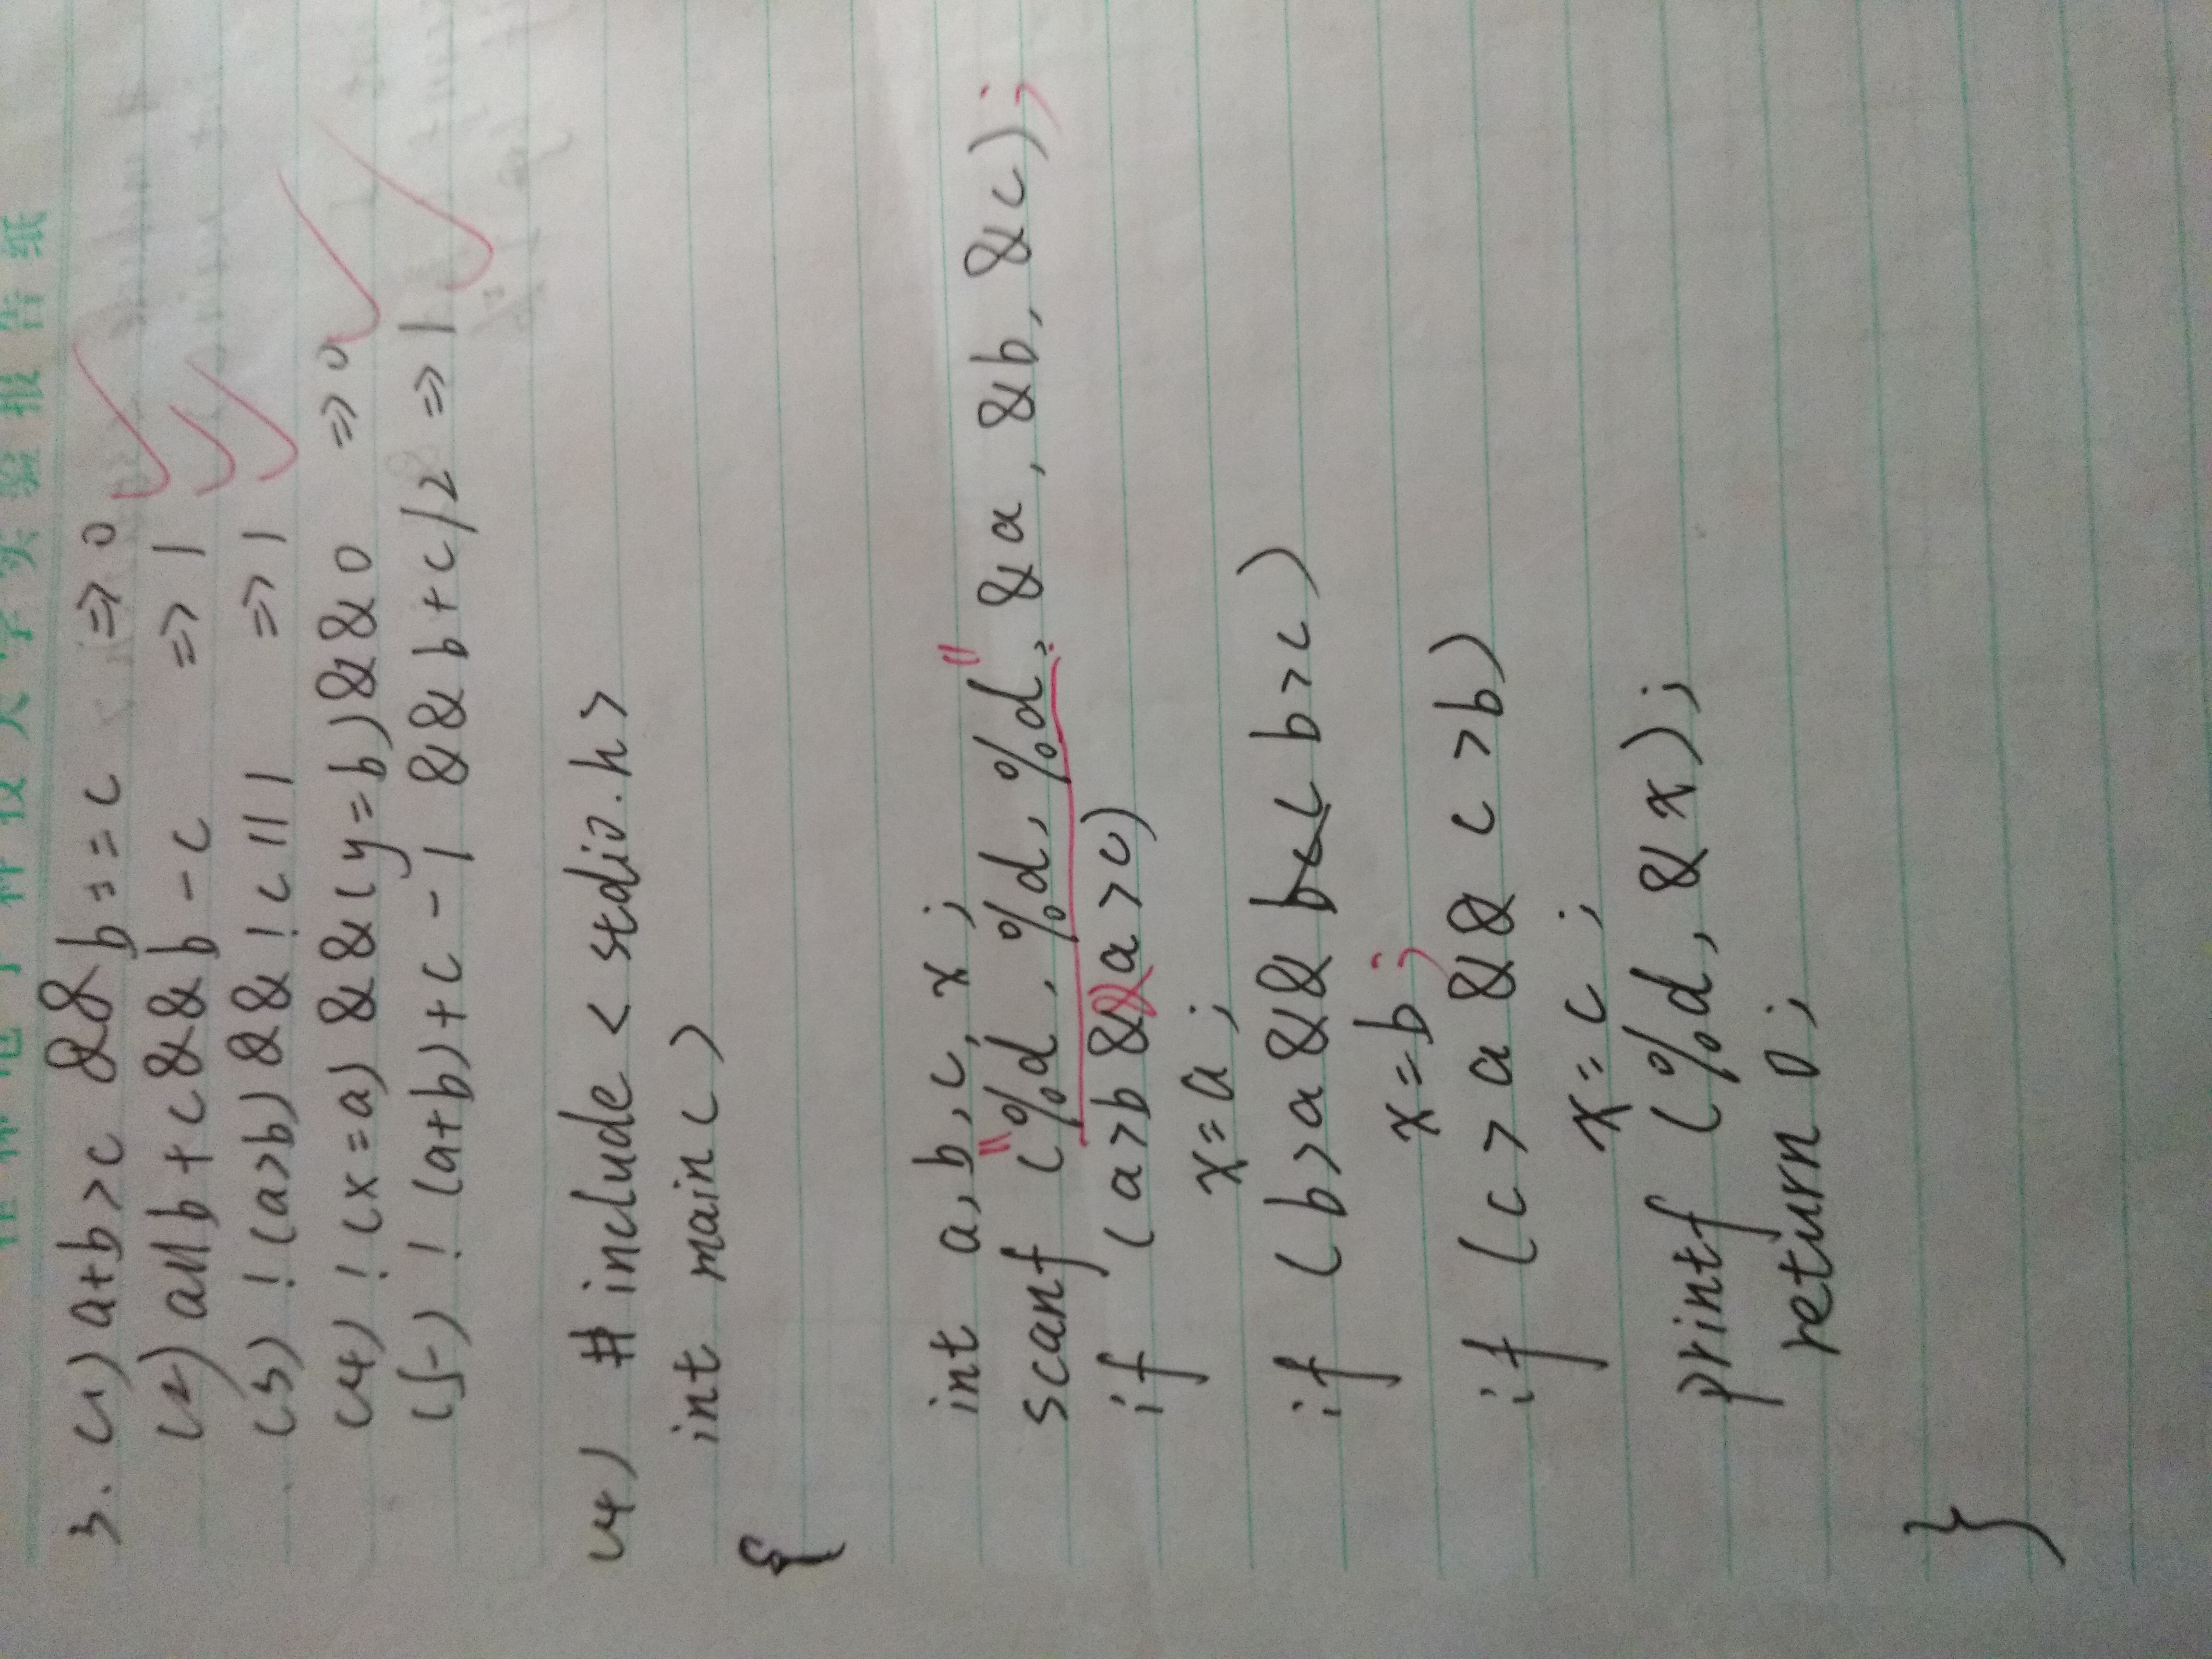 桂林电子科技大学实验报告纸
3. (1) a+b>c && b==c => 0
(2) a||b+c&&b-c => 1
(3) !(a>b) && !c||1 => 1
(4) !(x=a) &&(y=b)&&0 => 0
(5) !(a+b)+c-1 && b+c/2 => 1
(4) #include <stdio.h>
int main()
{
int a,b,c,x;
scanf ("%d,%d,%d", &a, &b, &c);
if (a>b && a>c)
x=a;
if (b>a && b>c)
x=b;
if (c>a && c>b)
x=c;
printf (%d, &x);
return 0;
}